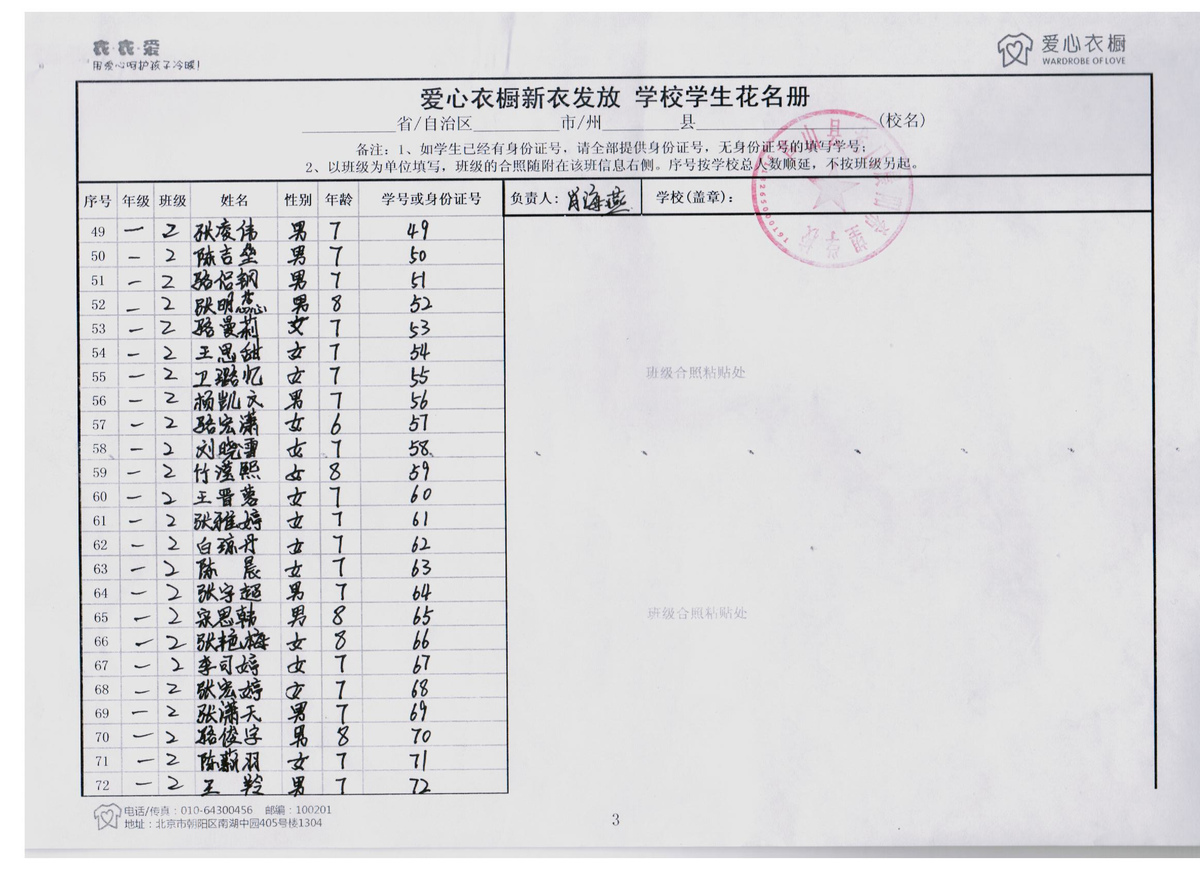 衣·衣·爱
用爱心呵护孩子冷暖!
爱心衣橱
WARDROBE OF LOVE
爱心衣橱新衣发放 学校学生花名册
__________省/自治区__________市/州________县____________________(校名)
备注:1、如学生已经有身份证号,请全部提供身份证号,无身份证号的填写学号;
2、以班级为单位填写,班级的合照随附在该班信息右侧。序号按学校总人数顺延,不按班级另起。
序号 年级 班级 姓名 性别 年龄 学号或身份证号 负责人: 肖海燕 学校(盖章):
49 一 2 张凌伟 男 7 49
50 一 2 陈吉垒 男 7 50
51 一 2 骆侣钢 男 7 51
52 一 2 张明蕊 男 8 52
53 一 2 骆曼莉 女 7 53
54 一 2 王思甜 女 7 54
55 一 2 卫璐忆 女 7 55
班级合照粘贴处
56 一 2 杨凯文 男 7 56
57 一 2 骆宏潇 女 6 57
58 一 2 刘晓雪 女 7 58
59 一 2 竹滢熙 女 8 59
60 一 2 王晋 女 7 60
61 一 2 张雅婷 女 7 61
62 一 2 白琼丹 女 7 62
63 一 2 陈晨 女 7 63
64 一 2 张宇超 男 7 64
65 一 2 宋思韩 男 8 65
班级合照粘贴处
66 一 2 张艳梅 女 8 66
67 一 2 李司婷 女 7 67
68 一 2 张宏婷 女 7 68
69 一 2 张潇天 男 7 69
70 一 2 骆俊宇 男 8 70
71 一 2 陈羽 女 7 71
72 一 2 王 男 7 72
电话/传真:010-64300456 邮编:100201
地址:北京市朝阳区南湖中园405号楼1304
3